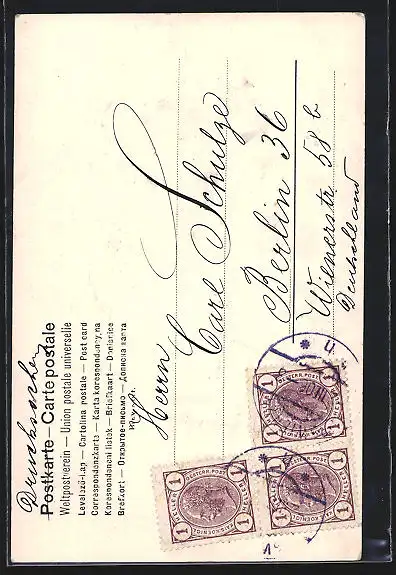 Drucksache
Postkarte — Carte postale
Weltpostverein — Union postale universelle
Levelező-lap — Cartolina postale — Post card
Correspondenzkarte — Karta korespondencyjna
Korespondenční lístek — Briefkaart — Dopisnice
Brefkort — Открытое письмо — Дописна карта
Herrn
Carl Schulze
Berlin 36
Wienerstr. 58 b
Deutschland
1 HELLER HELLER 1
KAIS. KOENIGL. OESTERR. POST
1 HELLER HELLER 1
KAIS. KOENIGL. OESTERR. POST
1 HELLER HELLER 1
KAIS. KOENIGL. OESTERR. POST